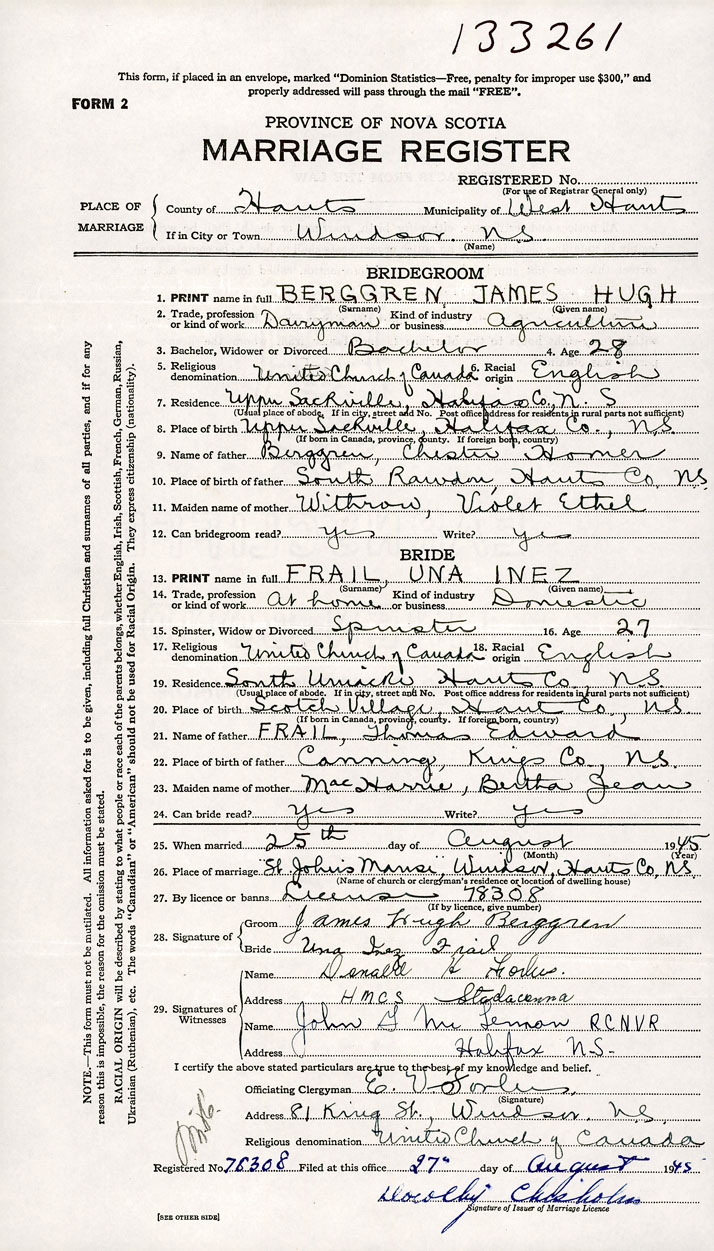 133261
This form, if placed in an envelope, marked "Dominion Statistics—Free, penalty for improper use $300," and
properly addressed will pass through the mail "FREE".
FORM 2
PROVINCE OF NOVA SCOTIA
MARRIAGE REGISTER
REGISTERED No.
(For use of Registrar General only)
PLACE OF MARRIAGE
County of Hants Municipality of West Hants
If in City or Town Windsor. N.S.
(Name)
BRIDEGROOM
1. PRINT name in full BERGGREN, JAMES HUGH
(Surname) (Given name)
2. Trade, profession or kind of work Dairyman Kind of industry or business Agriculture
3. Bachelor, Widower or Divorced Bachelor 4. Age 28
5. Religious denomination United Church of Canada 6. Racial origin English
7. Residence Upper Sackville, Halifax Co., N. S
(Usual place of abode. If in city, street and No. Post office address for residents in rural parts not sufficient)
8. Place of birth Upper Sackville, Halifax Co., N.S.
(If born in Canada, province, county. If foreign born, country)
9. Name of father Berggren, Chester Homer
10. Place of birth of father South Rawdon, Hants Co, NS
11. Maiden name of mother Withrow, Violet Ethel
12. Can bridegroom read? yes Write? yes
BRIDE
13. PRINT name in full FRAIL, UNA INEZ
(Surname) (Given name)
14. Trade, profession or kind of work At home Kind of industry or business Domestic
15. Spinster, Widow or Divorced Spinster 16. Age 27
17. Religious denomination United Church of Canada 18. Racial origin English
19. Residence South Uniacke Hants Co., N.S
(Usual place of abode. If in city, street and No. Post office address for residents in rural parts not sufficient)
20. Place of birth Scotch Village, Hant Co., N.S.
(If born in Canada, province, county. If foreign born, country)
21. Name of father FRAIL, Thomas Edward
22. Place of birth of father Canning, Kings Co., N.S.
23. Maiden name of mother Mac Harrie, Bertha Jean
24. Can bride read? Yes Write? yes
25. When married 25th day of August 1945
(Month) (Year)
26. Place of marriage "St. John's Manse", Windsor, Hants Co, NS
(Name of church or clergyman's residence or location of dwelling house)
27. By licence or banns License 78308
(If by licence, give number)
28. Signature of
Groom James Hugh Berggren
Bride Una Inez Frail
29. Signatures of Witnesses
Name Donald
Address HMCS Stadacona
Name John Mc Lennon RCNVR
Address Halifax N.S-
I certify the above stated particulars are true to the best of my knowledge and belief.
Officiating Clergyman E. V. Forbes,
(Signature)
Address 81 King St., Windsor. N.S.
Religious denomination United Church of Canada
Registered No. 78308 Filed at this office 27" day of August 1945
Dorothy Chisholm
Signature of Issuer of Marriage Licence
[SEE OTHER SIDE]
NOTE.—This form must not be mutilated. All information asked for is to be given, including full Christian and surnames of all parties, and if for any
reason this is impossible, the reason for the omission must be stated.
RACIAL ORIGIN will be described by stating to what people or race each of the parents belongs, whether English, Irish, Scottish, French, German, Russian,
Ukrainian (Ruthenian), etc. The words "Canadian" or "American" should not be used for Racial Origin. They express citizenship (nationality).